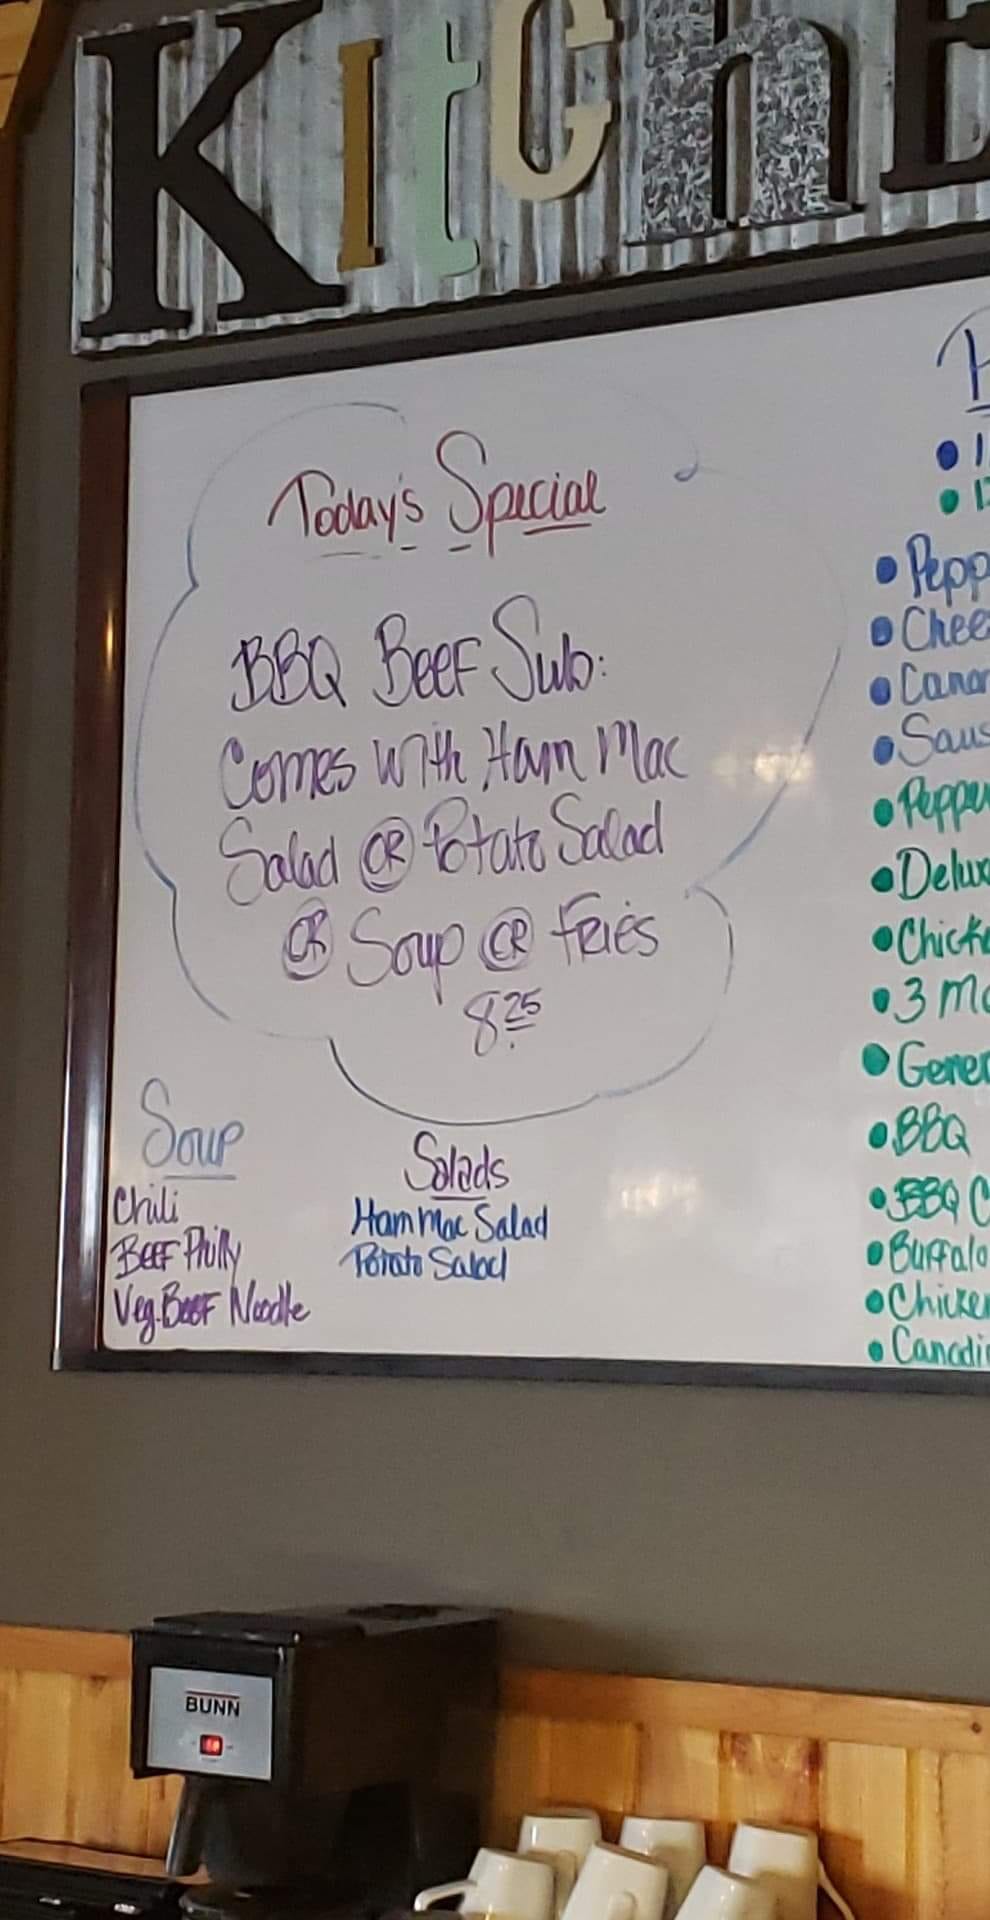 KItchE
Today's Special
BBQ Beef Sub:
Comes with Ham Mac
Salad OR Potato Salad
OR Soup OR Fries
8.25
Soup
Chili
Beef Philly
Veg. Beef Noodle
Salads
Ham Mac Salad
Potato Salad
Pepp
Chee
Canad
Saus
Peppe
Delux
Chicke
3 M
Gener
BBQ
BBQ C
Buffalo
Chicken
Canadi
BUNN